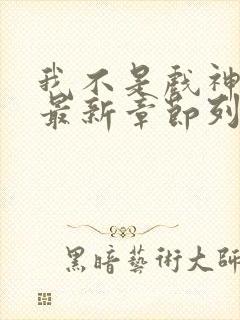 我不是戲神
最新章節列
黑暗藝術大師